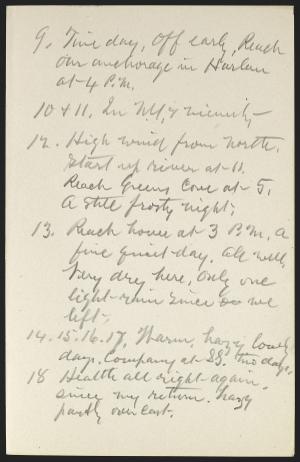 9. Fine day, Off early, Reach
our anchorage in Harlem
at 4 P.M.
10 & 11. In N.Y, & vicinity
12. High wind from North.
Start up river at 11.
Reach Greens Cove at 5.
A still frosty night;
13. Reach house at 3 P.M. A
fine quiet day. All well,
Very dry here, only one
light rain since we
left.
14. 15. 16. 17, Warm, hazy lovely
days, Company at SS. two days,
18 Health all right again,
since my return. hazy
partly over cast.